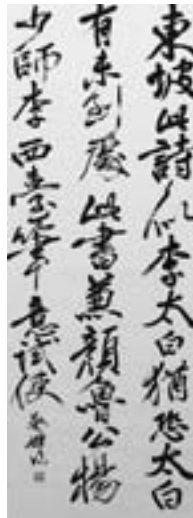 東坡此詩似李太白猶恐太白
有未到處此書兼顏魯公楊
少師李西臺筆意試使